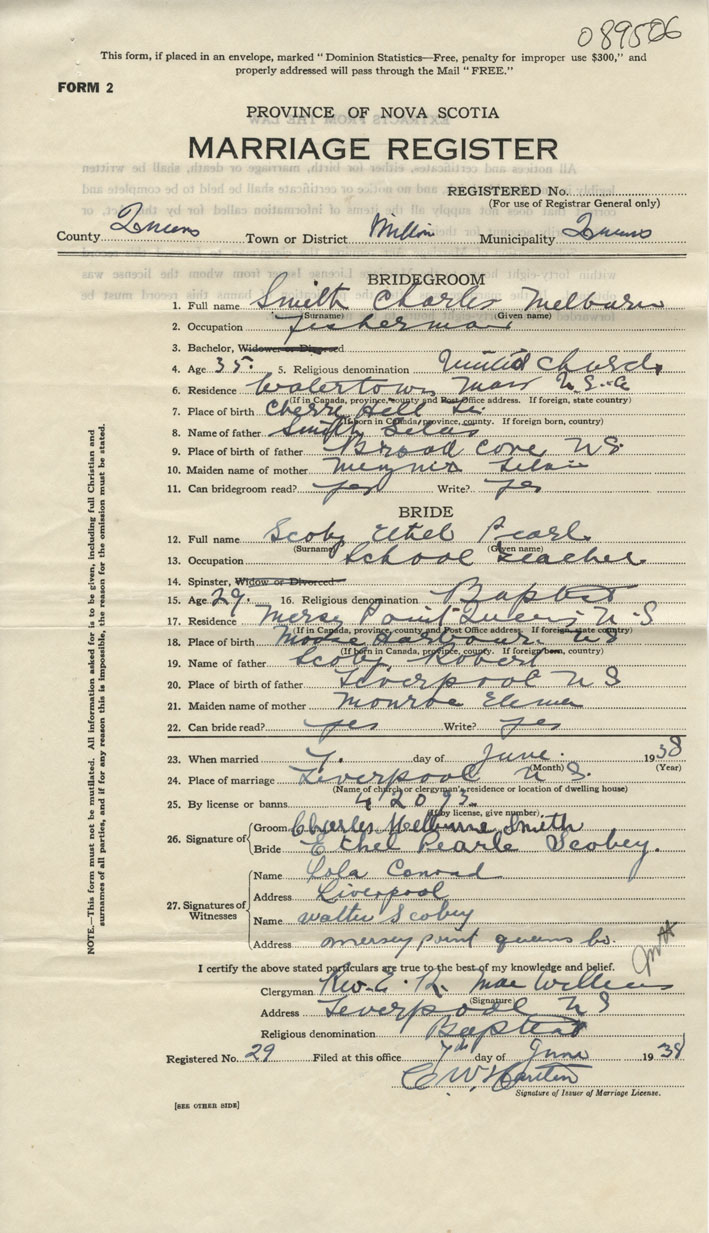 089506
This form, if placed in an envelope, marked "Dominion Statistics—Free, penalty for improper use $300," and
properly addressed will pass through the Mail "FREE."
FORM 2
PROVINCE OF NOVA SCOTIA
MARRIAGE REGISTER
REGISTERED No.
(For use of Registrar General only)
County Queens Town or District Milton Municipality Queens
BRIDEGROOM
1. Full name Smith Charles Melburn
(Surname) (Given name)
2. Occupation Fisherman
3. Bachelor, Widower or Divorced
4. Age 35. 5. Religious denomination United Church
6. Residence Watertown Mass U.S.A
(If in Canada, province, county and Post Office address. If foreign, state country)
7. Place of birth Cherry Hill
(If born in Canada, province, county. If foreign born, country)
8. Name of father Smith Silas
9. Place of birth of father Broad Cove N S
10. Maiden name of mother
11. Can bridegroom read? yes Write? yes
BRIDE
12. Full name Scoby Ethel Pearl
(Surname) (Given name)
13. Occupation School teacher
14. Spinster, Widow or Divorced
15. Age 29. 16. Religious denomination Baptist
17. Residence Mersey Point Queens N S
(If in Canada, province, county and Post Office address. If foreign, state country)
18. Place of birth Moose Harbour N S
(If born in Canada, province, county. If foreign born, country)
19. Name of father Scoby Robert
20. Place of birth of father Liverpool N S
21. Maiden name of mother Monroe
22. Can bride read? yes Write? yes
23. When married 7. day of June. 1938
(Month) (Year)
24. Place of marriage Liverpool N S.
(Name of church or clergyman's residence or location of dwelling house)
25. By license or banns 42093
(If by license, give number)
26. Signature of
Groom Charles Melburne Smith
Bride Ethel Pearle Scobey.
27. Signatures of Witnesses
Name Lola Conrad
Address Liverpool
Name Walter Scobey
Address mersey point queens Co.
I certify the above stated particulars are true to the best of my knowledge and belief.
Clergyman Rev. E. R. Mac Williams
(Signature)
Address Liverpool N S
Religious denomination Baptist
Registered No. 29 Filed at this office 7th day of June 1938
Signature of Issuer of Marriage License.
[SEE OTHER SIDE]
NOTE.—This form must not be mutilated. All information asked for is to be given, including full Christian and
surnames of all parties, and if for any reason this is impossible, the reason for the omission must be stated.